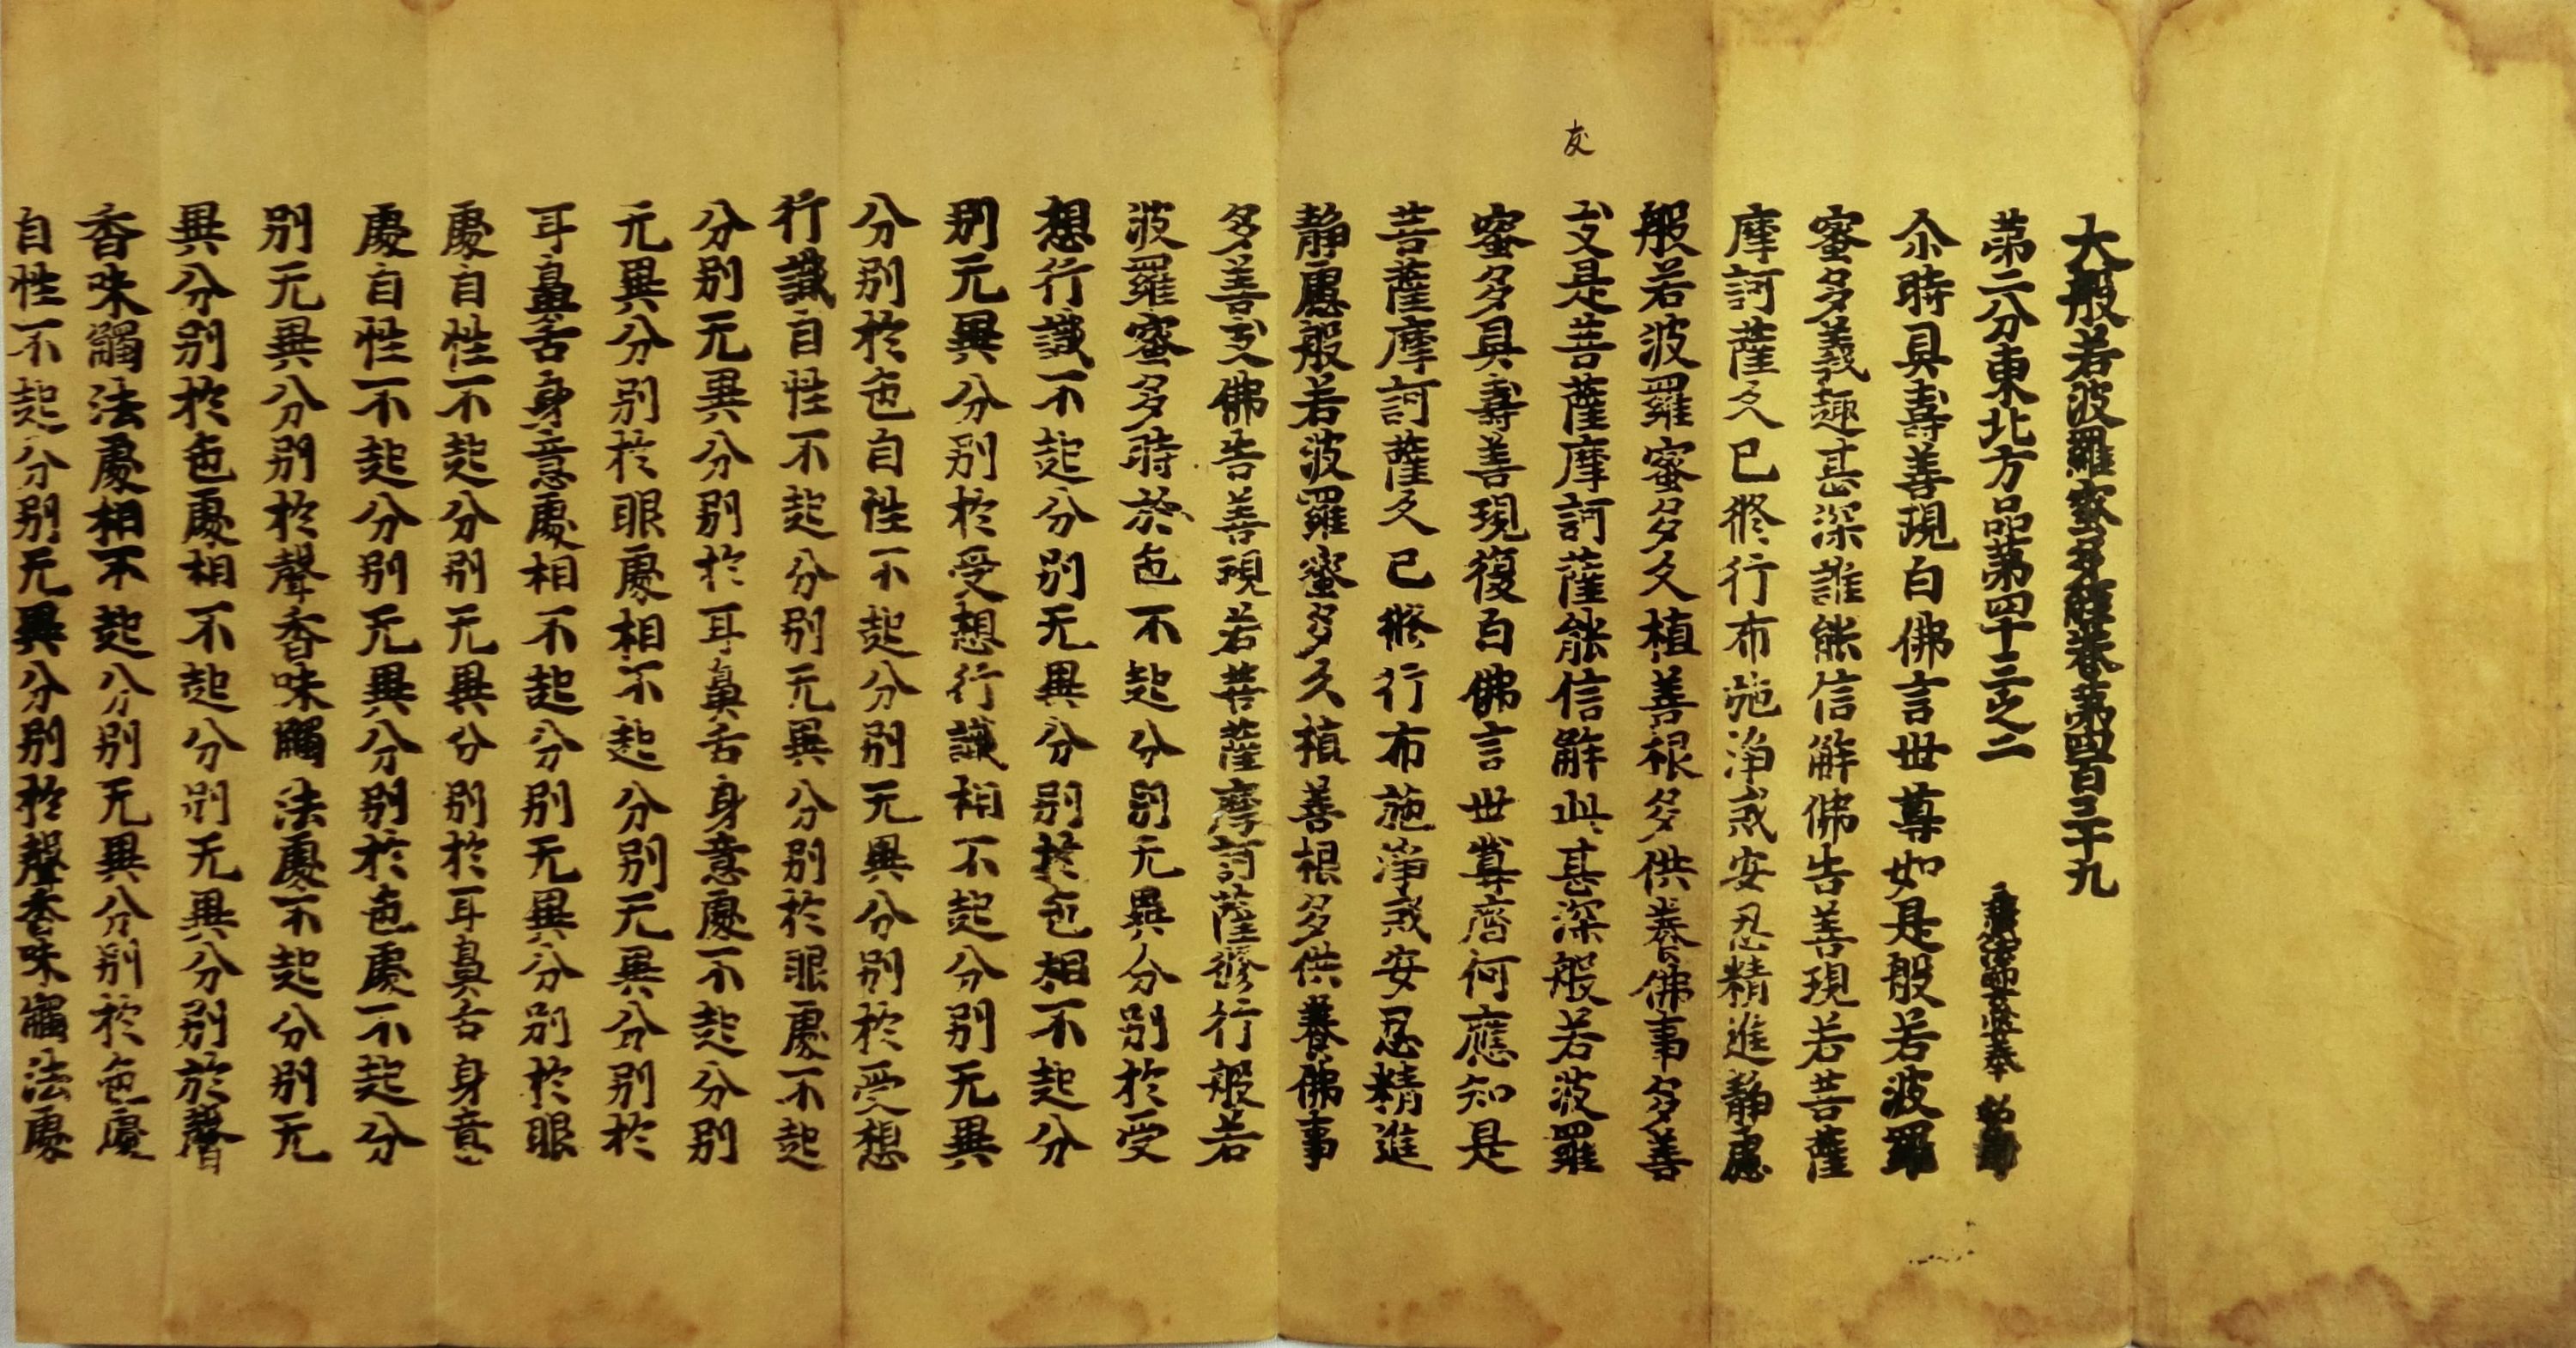 大般若波羅蜜多經卷第四百三十九
第二分東北方品第四十三之二
尒時具壽善現白佛言世尊如是般若波羅
蜜多義趣甚深誰能信解佛告善現若菩薩
摩訶薩久已修行布施淨戒安忍精進靜慮
般若波羅蜜多久植善根多供養佛事多善
友是菩薩摩訶薩能信解此甚深般若波羅
蜜多具壽善現復白佛言世尊齊何應知是
菩薩摩訶薩久已修行布施淨戒安忍精進
靜慮般若波羅蜜多久植善根多供養佛事
多善友佛告善現若菩薩摩訶薩修行般若
波羅蜜多時於色不起分別无異分別於受
想行識不起分別无異分別於色相不起分
別无異分別於受想行識相不起分別无異
分別於色自性不起分別无異分別於受想
行識自性不起分別无異分別於眼處不起
分別无異分別於耳鼻舌身意處不起分別
无異分別於眼處相不起分別无異分別於
耳鼻舌身意處相不起分別无異分別於眼
處自性不起分別无異分別於耳鼻舌身意
處自性不起分別无異分別於色處不起分
別无異分別於聲香味觸法處不起分別无
異分別於色處相不起分別无異分別於聲
香味觸法處相不起分別无異分別於色處
自性不起分別无異分別於聲香味觸法處
友